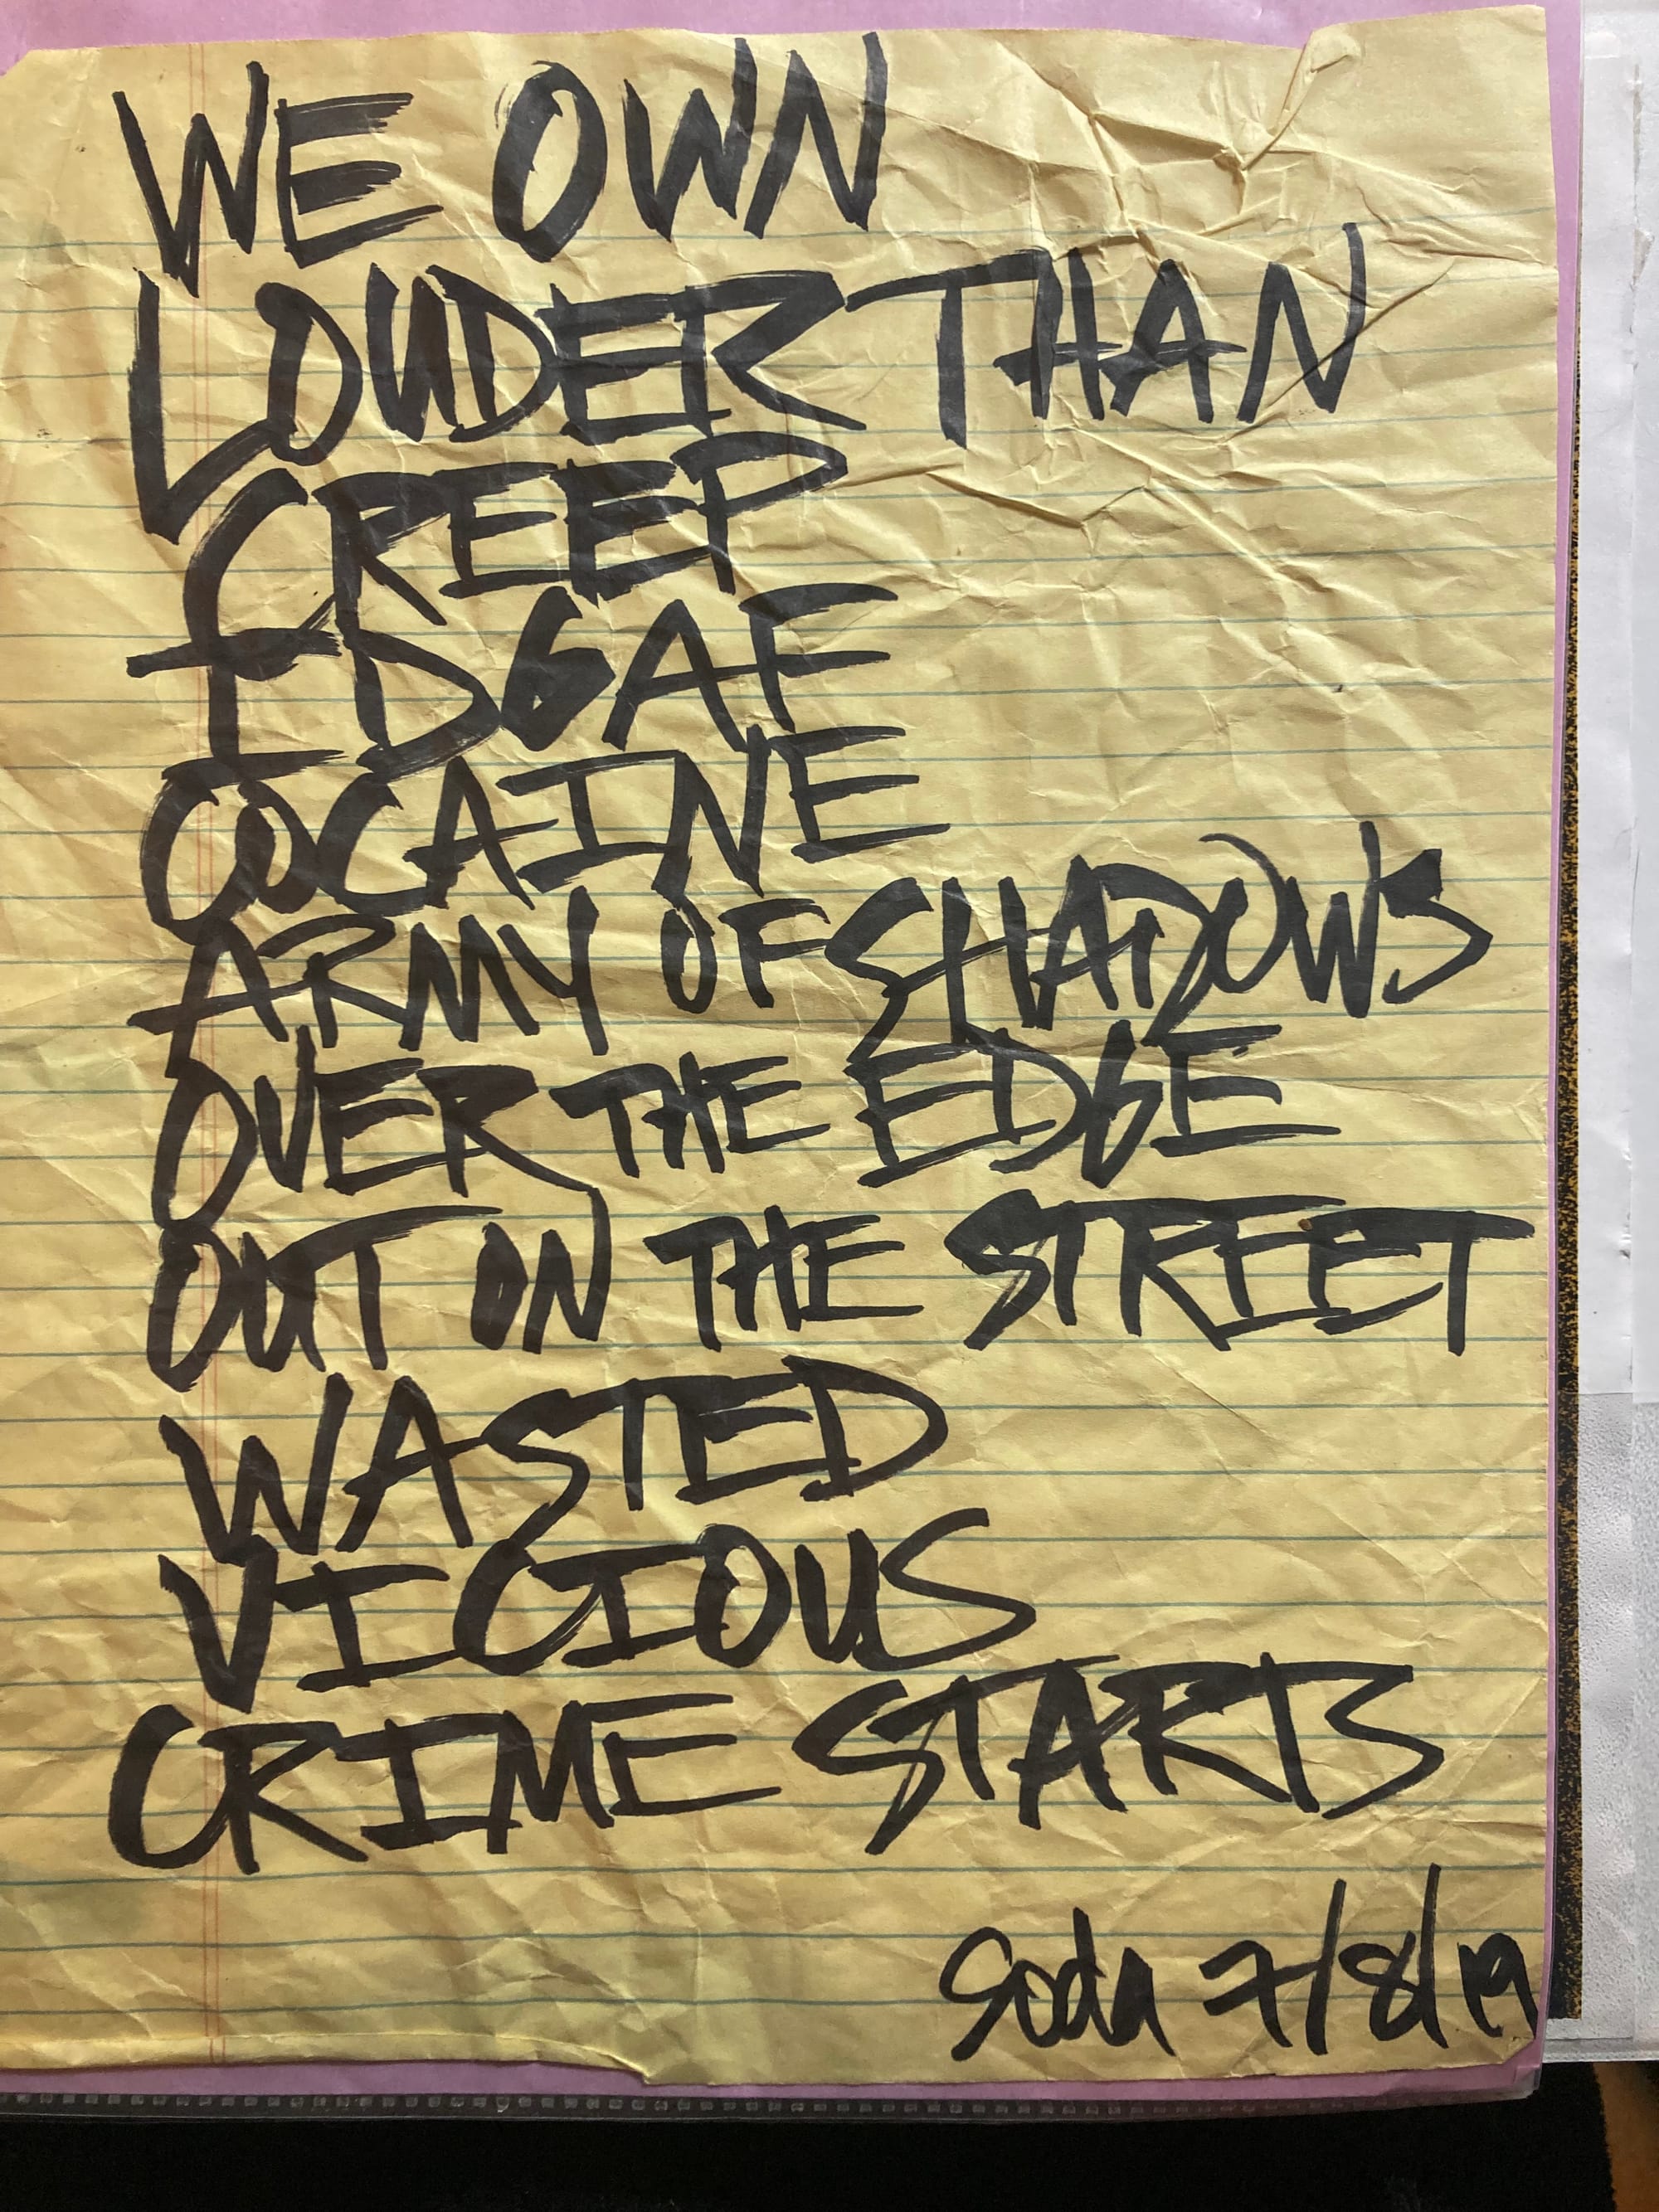 WE OWN
LOUDER THAN
CREEP
IDGAF
COCAINE
ARMY OF SHADOWS
OVER THE EDGE
OUT ON THE STREET
WASTED
VICIOUS
CRIME STARTS
Soda 7/8/19